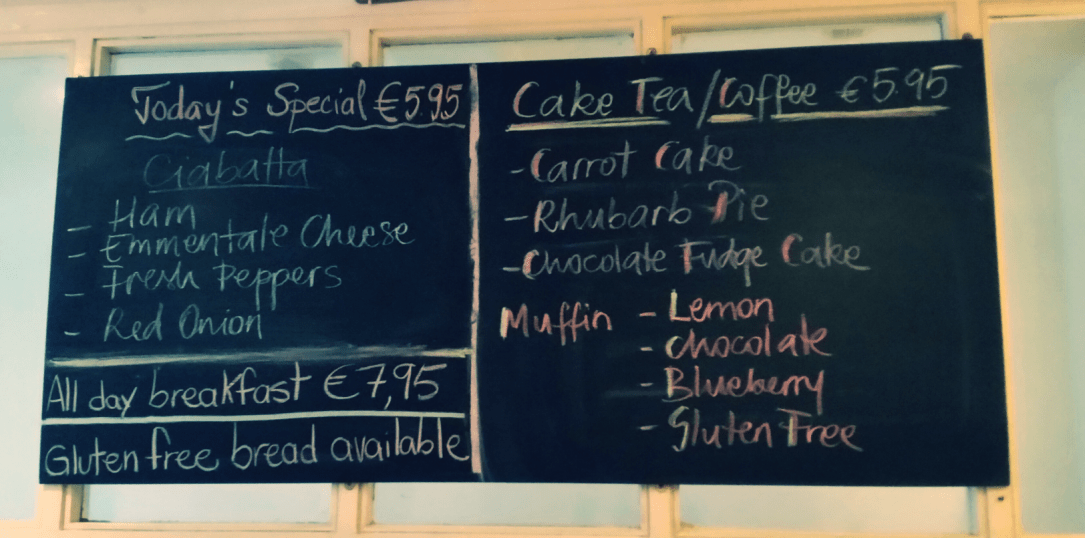 Today's Special €5.95
Ciabatta
- Ham
- Emmentale Cheese
- Fresh Peppers
- Red Onion
All day breakfast €7,95
Gluten free bread available
Cake Tea/Coffee €5.95
- Carrot Cake
- Rhubarb Pie
- Chocolate Fudge Cake
Muffin - Lemon
- Chocolate
- Blueberry
- Gluten Free